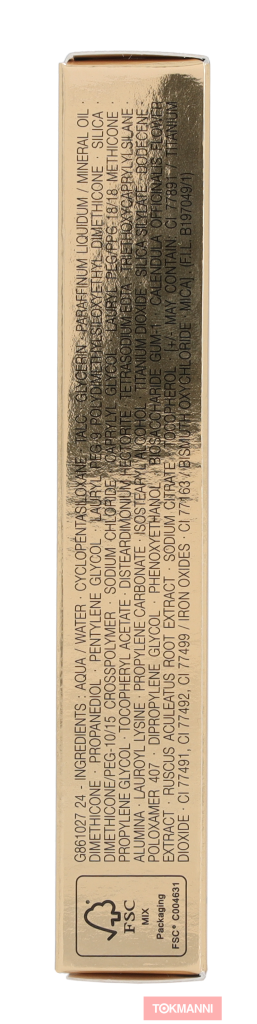 G861027 24 - INGREDIENTS : AQUA / WATER · CYCLOPENTASILOXANE · TALC · GLYCERIN · PARAFFINUM LIQUIDUM / MINERAL OIL ·
DIMETHICONE · PROPANEDIOL · PENTYLENE GLYCOL · LAURYL PEG-9 POLYDIMETHYLSILOXYETHYL DIMETHICONE · SILICA ·
DIMETHICONE/PEG-10/15 CROSSPOLYMER · SODIUM CHLORIDE · CAPRYLYL GLYCOL · LAURYL PEG/PPG-18/18 METHICONE ·
PROPYLENE GLYCOL · TOCOPHERYL ACETATE · DISTEARDIMONIUM HECTORITE · TETRASODIUM EDTA · TRIETHOXYCAPRYLYLSILANE ·
ALUMINA · LAUROYL LYSINE · PROPYLENE CARBONATE · ISOSTEARYL ALCOHOL · TITANIUM DIOXIDE · SILICA SILYLATE · DODECENE ·
POLOXAMER 407 · DIPROPYLENE GLYCOL · PHENOXYETHANOL · BIOSACCHARIDE GUM-1 · CALENDULA OFFICINALIS FLOWER
EXTRACT · RUSCUS ACULEATUS ROOT EXTRACT · SODIUM CITRATE · TOCOPHEROL · [+/- MAY CONTAIN: CI 77891 / TITANIUM
DIOXIDE · CI 77491, CI 77492, CI 77499 / IRON OXIDES · CI 77163 / BISMUTH OXYCHLORIDE · MICA] (F.I.L. B197049/1)
FSC
MIX
Packaging
FSC® C004631
TOKMANNI